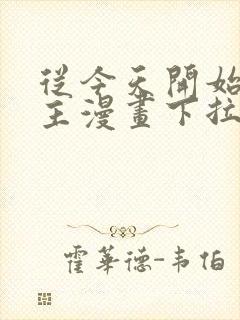 從今天開始
王漫畫下拉
霍華德-韦伯